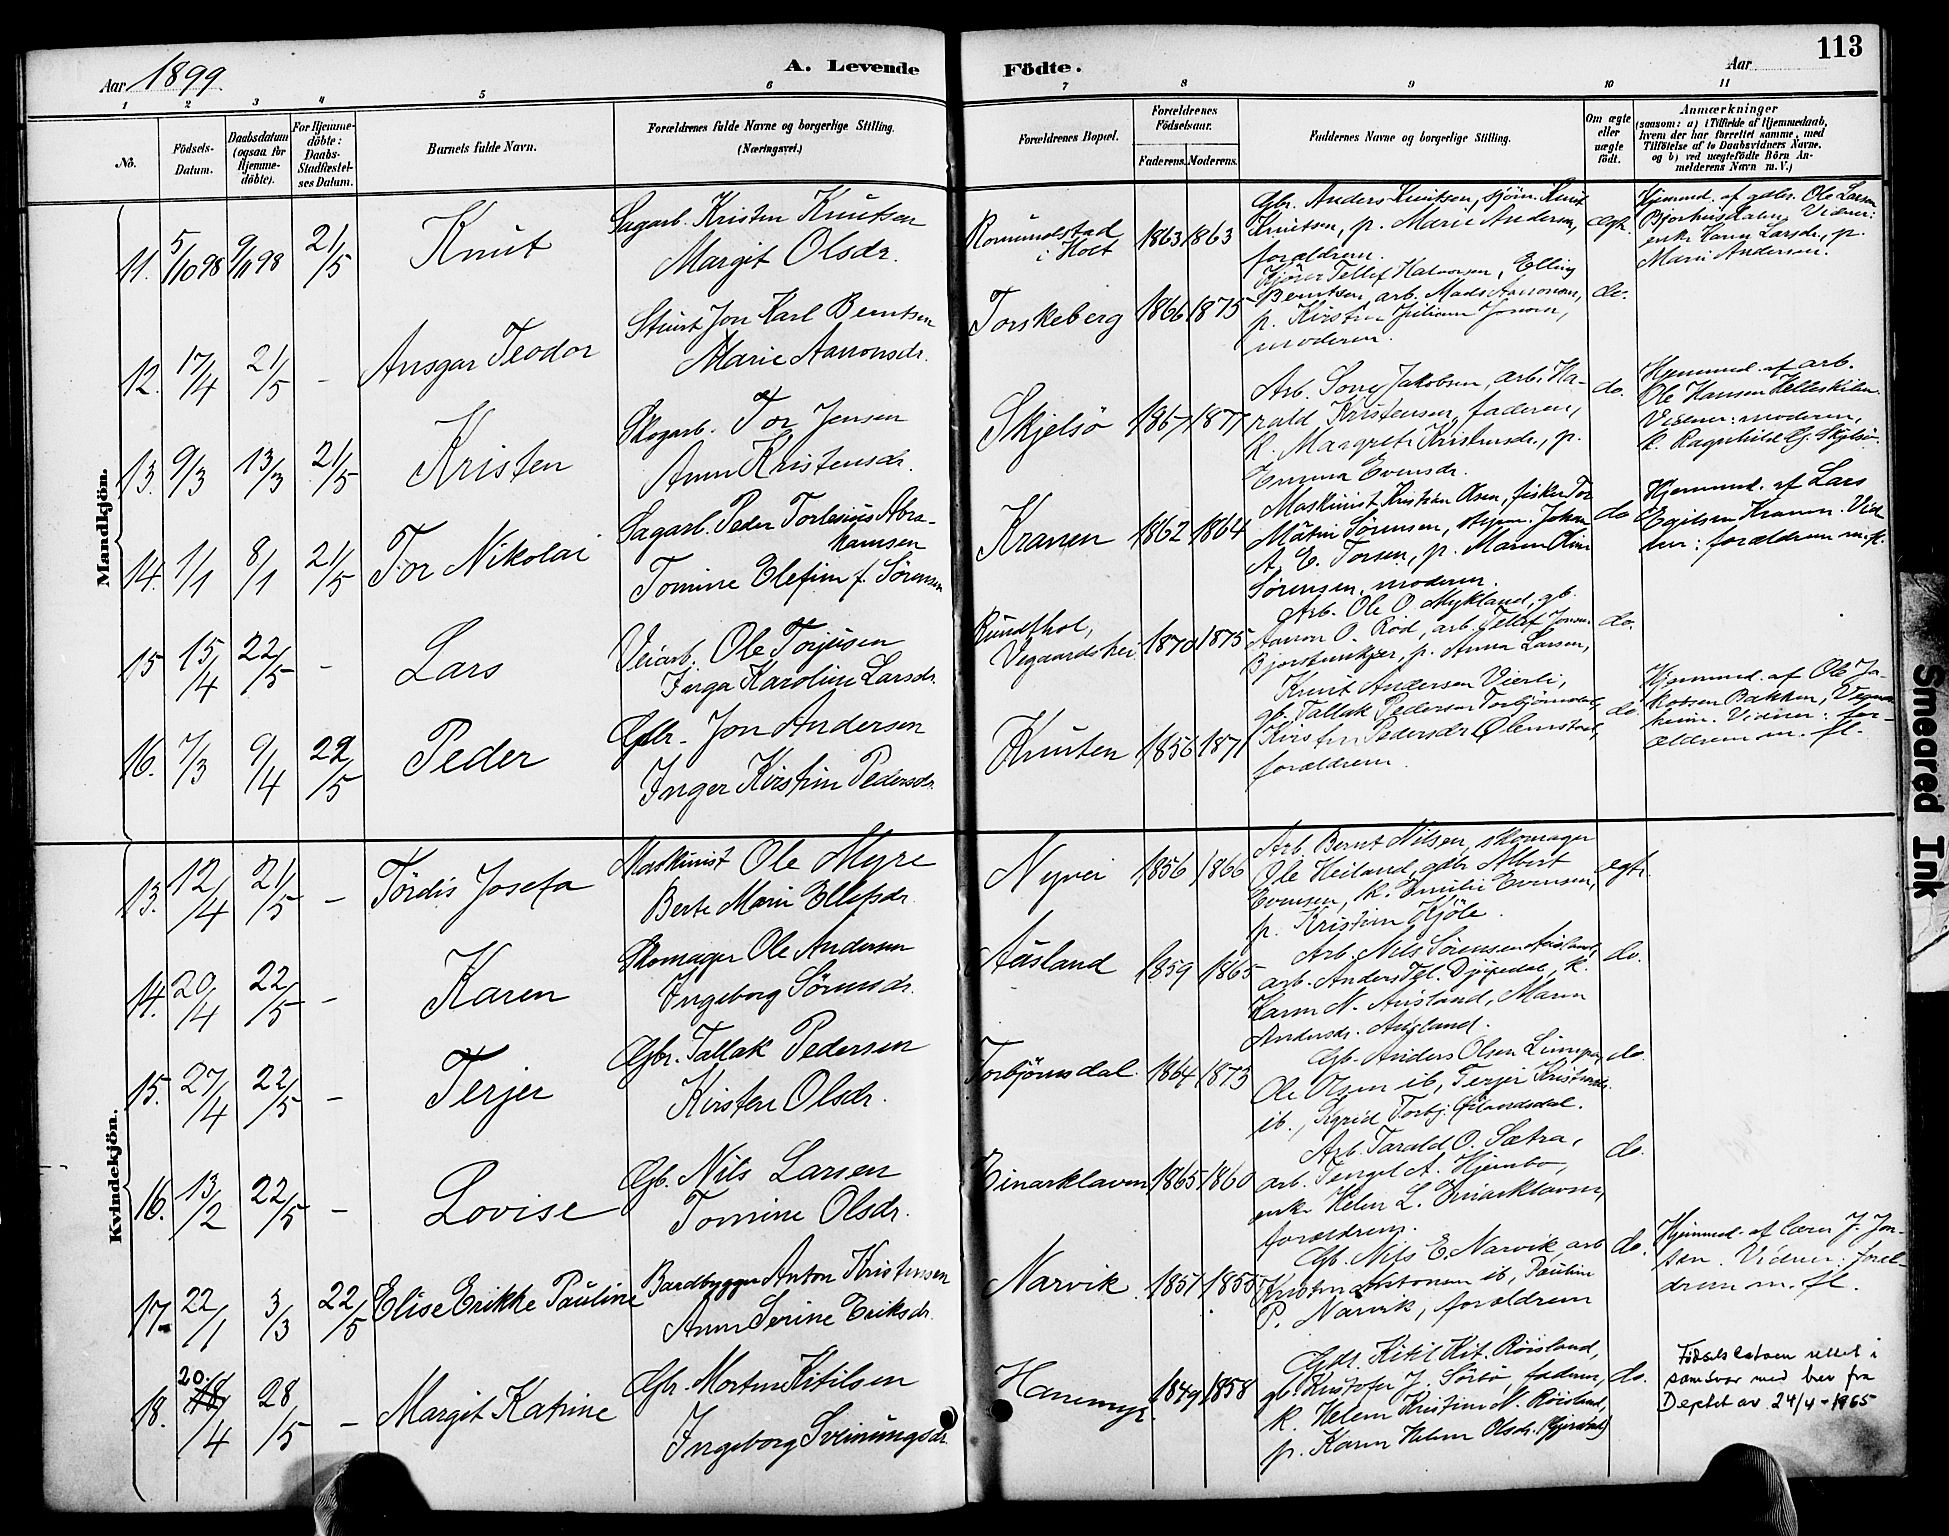 113
Aar 1899
A. Levende
Födte.
Aar
1 2 3 4 5 6 7 8 9 10 11
No.
Födsels-
Datum.
Daabsdatum
(ogsaa for
Hjemme-
döbte).
For Hjemme-
döbte:
Daabs-
Stadfestel-
ses Datum.
Barnets fulde Navn.
Forældrenes fulde Navne og borgerlige Stilling.
(Næringsvei.)
Forældrenes Bopæl.
Forældrenes
Födselsaar.
Faderens. Moderens.
Faddernes Navne og borgerlige Stilling.
Om ægte
eller
uægte
født.
Anmærkninger
(saasom: a) i Tilfælde af Hjemmedaab,
hvem der har forrettet samme, med
Tilföielse af to Daabsvidners Navne,
og b) ved uægtefödte Börn An-
melderens Navn m. V.)
Mandkjön.
11. 5/10 98 9/11 98 21/5 Knut
Sagarb. Kristen Knutsen
Margit Olsdr.
Romundstad
i Holt
1863 1863
Gbr. Anders Knutsen, sjöm. Knut
Knutsen, p. Marie Andersen,
forældrene.
egte.
Hjemmed. af gdbr. Ole Larsen
Vidner:
enke Karen Larsdr., p.
Marie Andersen.
12. 17/4 21/5 - Ansgar Teodor
Stuert Jon Karl Berntsen
Marie Aanonsdr.
Torskeberg
1866 1875
Tellef Halvorsen, Elling
Berntsen, arb. Mads Aanonsen,
p. Kirstine Juliane Jonsen,
moderen.
do.
13. 9/3 13/3 21/5 Kristen
Skogarb. Tor Jensen
Anne Kristensdr.
Skjelsö
1867 1877
Arb. Jakobsen, arb. Ha-
rald Kristensen, faderen,
k. Margrete Kristensdr., p.
Emma Evensdr.
do.
Hjemmed. af arb.
Ole Hansen
Vidner: moderen,
k. Ragnhild G. Skjelsö.
14. 1/1 8/1 21/5 Tor Nikolai
Sagarb. Peder Torlesius Abra-
hamsen
Tomine Elefine f. Sörensen
Kranen
1862 1864
Maskinist Kristian Olsen, fisker Tor
Sörensen, Johan
A. E. Torsen, p. Maren Oline
Sörensen, moderen.
do
Hjemmed. af Lars
Egilsen Kranen. Vid
ner: forældrene m. fl.
15 15/4 22/5 - Lars
Veiarb. Ole Torjusen
Inga Karoline Larsdr.
Vegaardshei
1870 1875
Arb. Ole O. Mykland, gb.
Aanon O. Röd, arb. Tellef Jonsen
p. Anna Larsen,
do.
16. 7/3 9/4 22/5 Peder
Gbr. Jon Andersen
Inger Kirstine Pedersdr.
Knuten
1856 1871
Knut Andersen Vierli,
gb. Tallak Pedersen Torbjörnsdal,
Kirsten Pedersdr Ølemstad,
forældrene.
do.
Hjemmed. af Ole Ja-
kobsen Bakken,
Vidner: for-
ældrene m. fl.
Kvindekjön.
13. 12/4 21/5 - Tördis Josefa
Maskinist Ole Myre
Berte Marie Ellefsdr.
Nyvei
1856 1866
Arb. Bernt Nilsen, skomager
Ole Heiland, gdbr. Albert
Evensen, k. Emilie Evensen,
p. Kristine Kjöle.
egte.
14. 20/4 22/5 - Karen
Skomager Ole Andersen
Ingeborg Sörensdr.
Aasland
1859 1865
Arb. Nils Sörensen Aasland,
arb. Anders Tgl. Djupedal, k.
Karen N. Aasland, Maren
Andersdr. Aasland.
do.
15. 27/4 22/5 - Terjer
Gbr. Tallak Pedersen
Kirsten Olsdr.
Torbjörnsdal
1864 1873
Gb. Anders Olsen
Ole Olsen ib, Terjer Kristensdr.
ib., Sigrid Torbj.
do.
16. 13/2 22/5 - Lovise
Gb. Nils Larsen
Tomine Olsdr.
Einarklaven
1865 1860
Arb. Tarald O. Sætra,
arb. Tengel A. Hjembo,
enke Helene L. Einarklaven,
forældrene.
do.
17. 22/1 3/3 22/5 Elise Erikke Pauline
Baadbygger Anton Kristensen
Anne Serine Eriksdr.
Narvik
1857 1855
Gb. Nils E. Narvik, arb
Kristen Antonsen ib, Pauline
P. Narvik, forældrene
do.
Hjemmed. af lærer J. Jon-
sen. Vidner: foræl-
drene m. fl.
18. 20/4 28/5 - Margit Katrine
Gbr. Morten Kitilsen
Ingeborg Sveinungsdr.
Hanemyr
1849 1858
Gbr. Kitil Kit. Röisland,
gb. Kristofer J. Sörbö, faderen,
k. Helene Kristine N. Röisland,
p. Karen Helene Olsdr.
do.
Födselsdatoen rettet i
samsvar med brev fra
Deptet av 24/4-1965
Smeared Ink